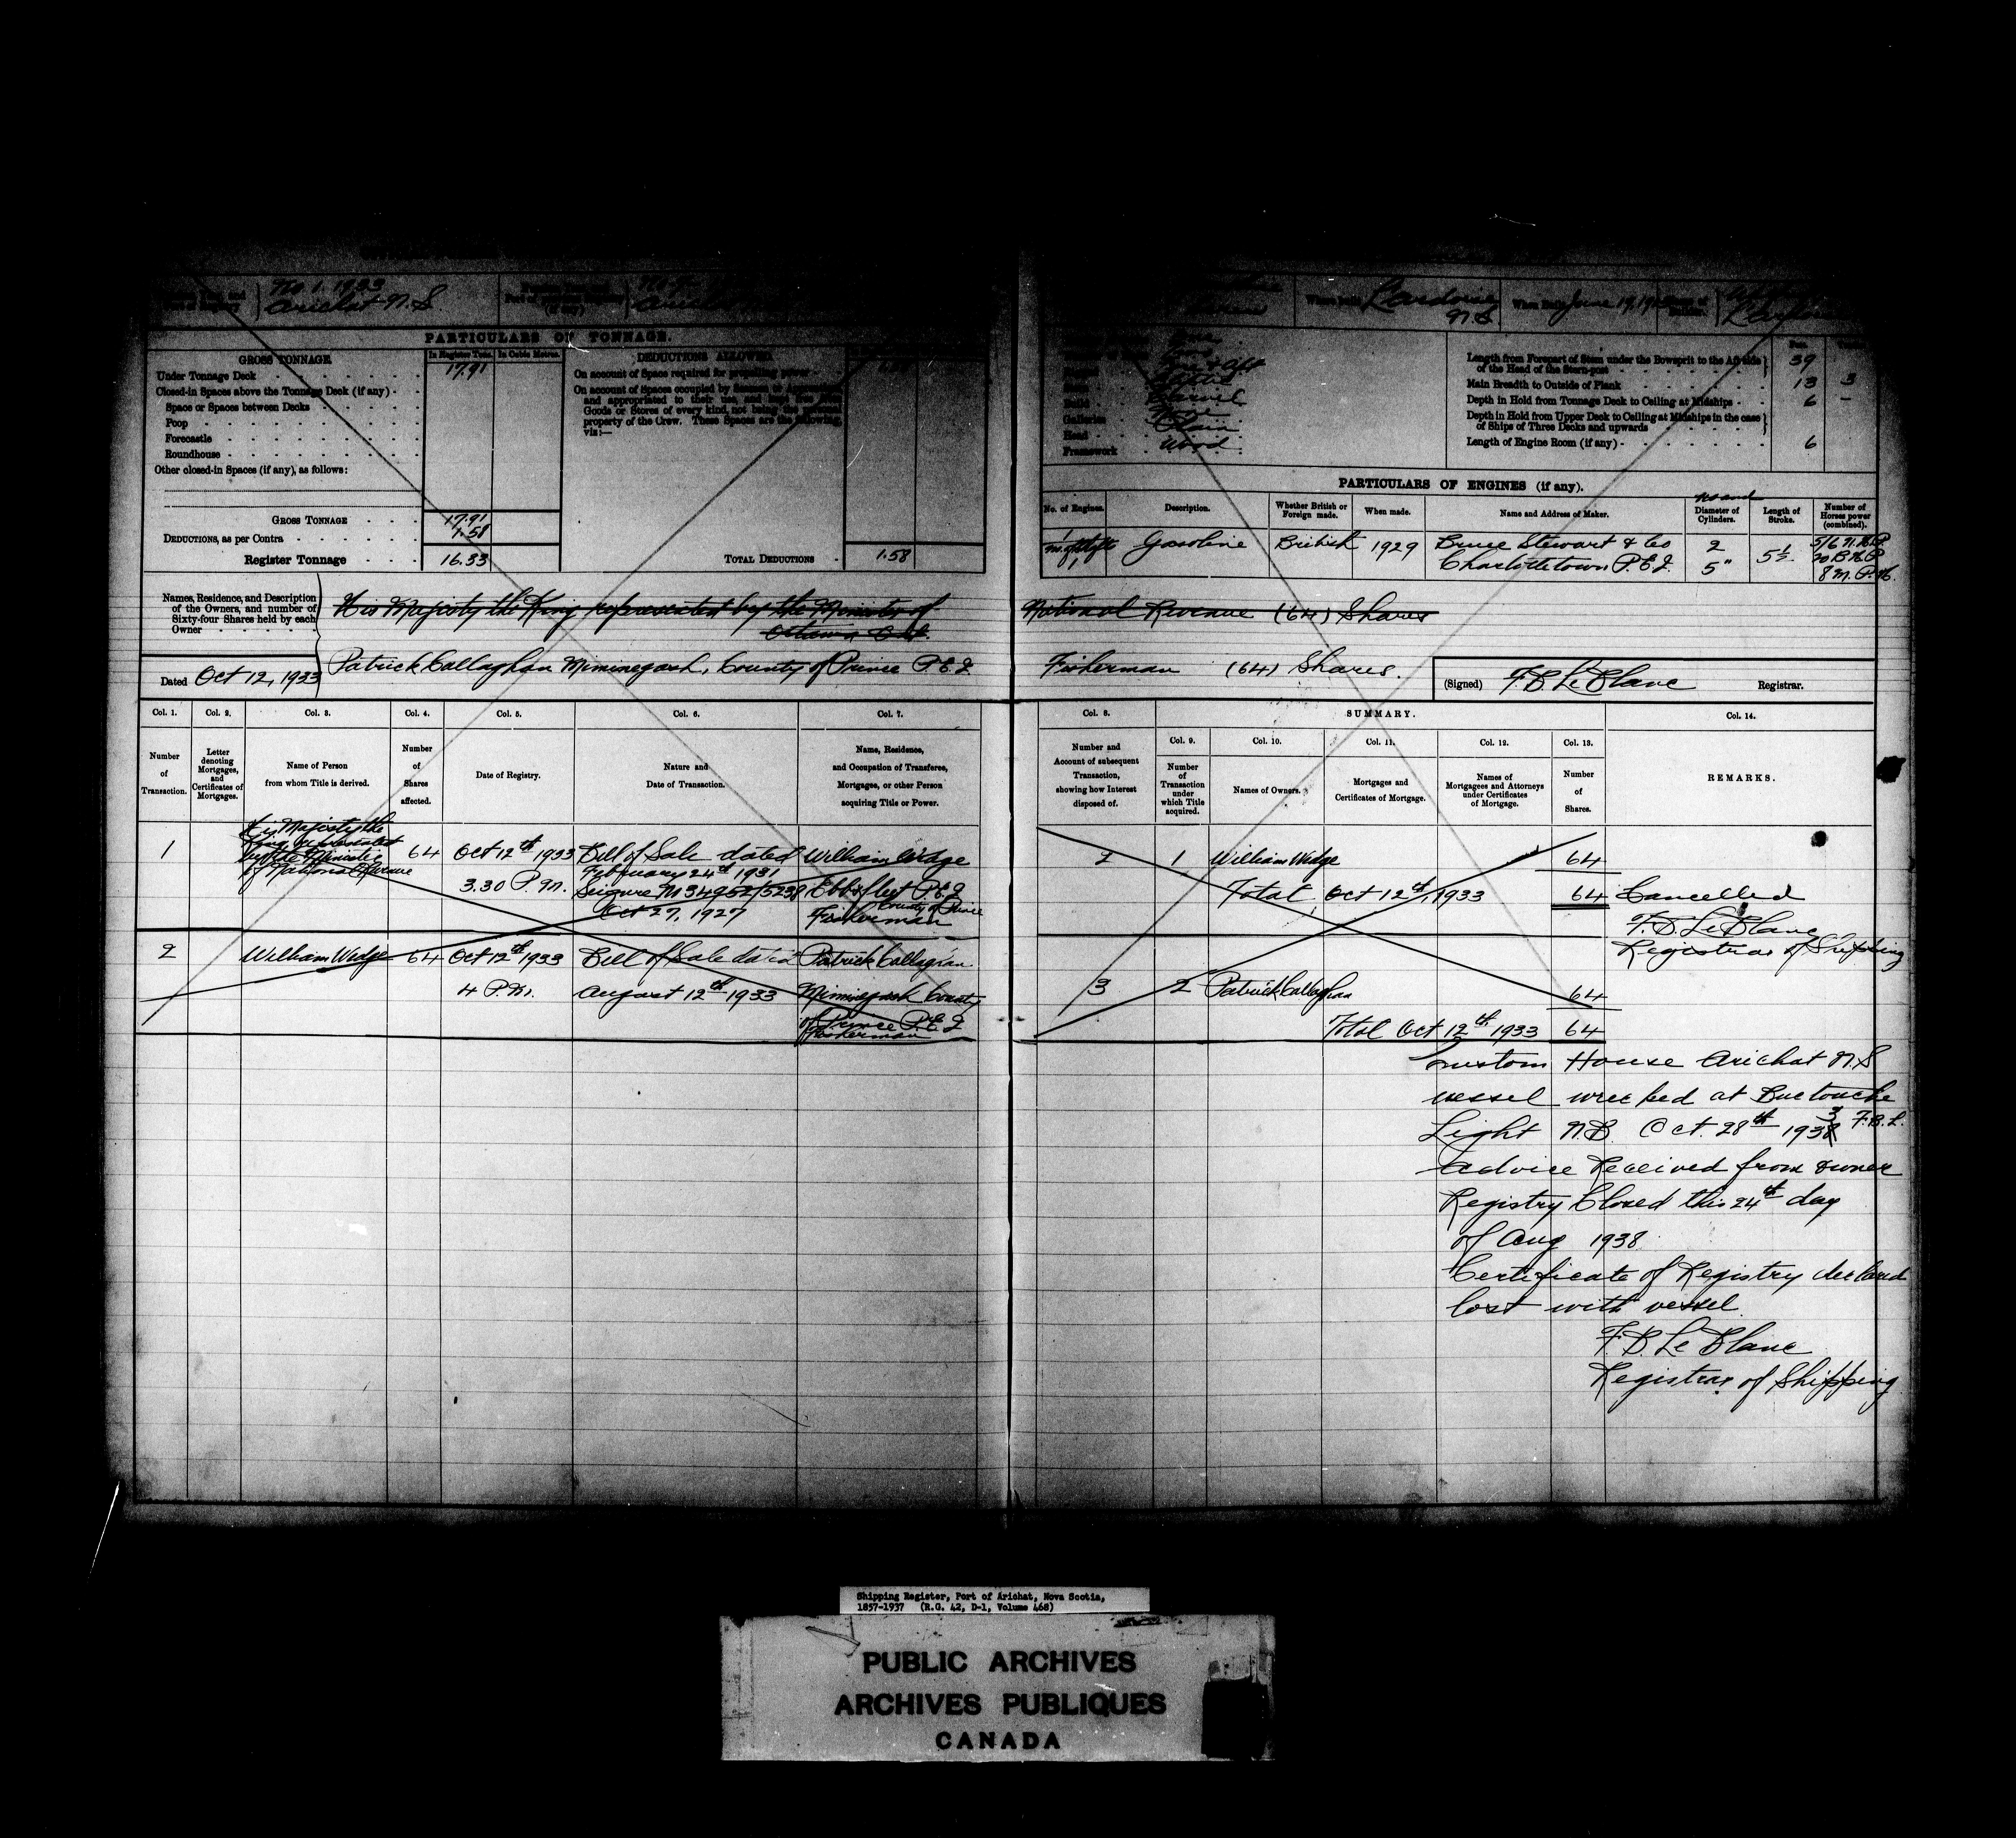 No. 1. 1933
Arichat N.S.
When Built June 19, 19
N.S.
PARTICULARS OF TONNAGE.
GROSS TONNAGE
In Register Tons. In Cubic Metres.
DEDUCTIONS ALLOWED
Under Tonnage Deck 17.91
Closed-in Spaces above the Tonnage Deck (if any)
Space or Spaces between Decks
Poop
Forecastle
Roundhouse
Other closed-in Spaces (if any), as follows:
GROSS TONNAGE 17.91
DEDUCTIONS, as per Contra
Register Tonnage 16.33
On account of Space required for propelling power
On account of Spaces occupied by Seamen or Apprentices,
and appropriated to their use, and kept free from
Goods or Stores of every kind, not being the personal
property of the Crew. These Spaces are the following,
viz:—
TOTAL DEDUCTIONS 1.58
Build Carvel
Galleries None
Head Plain
Framework Wood
Length from Forepart of Stem under the Bowsprit to the Aft side
of the Head of the Stern-post 39
Main Breadth to Outside of Plank 13 3
Depth in Hold from Tonnage Deck to Ceiling at Midships 6 –
Depth in Hold from Upper Deck to Ceiling at Midships in the case
of Ships of Three Decks and upwards
Length of Engine Room (if any) 6
PARTICULARS OF ENGINES (if any).
No. of Engines. Description. Whether British or Foreign made. When made. Name and Address of Maker. No and Diameter of Cylinders. Length of Stroke. Number of Horses power (combined).
1 Gasoline British 1929 Bruce Stewart & Co 2 5½ 5/6 N.H.P.
No. of Shafts 1 Charlottetown P.E.I. 5" 20 B.H.P.
8 M.P.H.
Names, Residence, and Description
of the Owners, and number of
Sixty-four Shares held by each
Owner
His Majesty the King represented by the Minister of National Revenue (64) Shares
Ottawa Ont.
Patrick Callaghan Miminegash, County of Prince P.E.I. Fisherman (64) Shares.
Dated Oct 12, 1933
(Signed) F B LeBlanc Registrar.
Col. 1. Col. 2. Col. 3. Col. 4. Col. 5. Col. 6. Col. 7. Col. 8. SUMMARY. Col. 14.
Col. 9. Col. 10. Col. 11. Col. 12. Col. 13.
Number of Transaction.
Letter denoting Mortgages, and Certificates of Mortgages.
Name of Person from whom Title is derived.
Number of Shares affected.
Date of Registry.
Nature and Date of Transaction.
Name, Residence, and Occupation of Transferee, Mortgagee, or other Person acquiring Title or Power.
Number and Account of subsequent Transaction, showing how Interest disposed of.
Number of Transaction under which Title acquired.
Names of Owners.
Mortgages and Certificates of Mortgage.
Names of Mortgagees and Attorneys under Certificates of Mortgage.
Number of Shares.
REMARKS.
1 His Majesty the King represented by the Minister of National Revenue 64
Oct 12th 1933
3.30 P.M.
Bill of Sale dated
February 24th 1931
Seizure No 34952/5238
Oct 27, 1927
William Wedge
Ebbsfleet P.E.I.
County of Prince
Fisherman
2 1 William Wedge 64
Total Oct 12th, 1933 64
Cancelled
F.B. LeBlanc
Registrar of Shipping
2 William Wedge 64
Oct 12th 1933
4 P.M.
Bill of Sale dated
August 12th 1933
Patrick Callaghan
Miminegash County
of Prince P.E.I.
Fisherman
3 2 Patrick Callaghan 64
Total Oct 12th 1933 64
Custom House Arichat N.S
vessel wrecked at Buctouche
Light N.B. Oct. 28th 1933 F.B.L.
advice Received from owner
Registry Closed this 24th day
of Aug 1938
Certificate of Registry declared
lost with vessel.
F.B. LeBlanc
Registrar of Shipping
Shipping Register, Port of Arichat, Nova Scotia,
1857-1937 (R.G. 42, D-1, Volume 468)
PUBLIC ARCHIVES
ARCHIVES PUBLIQUES
CANADA